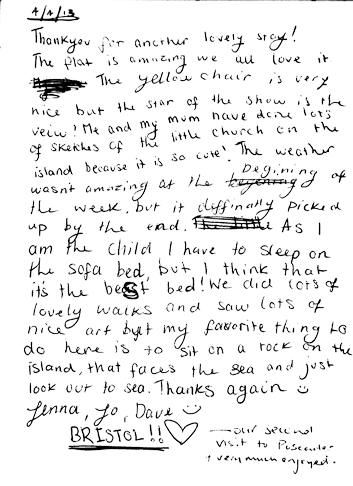 4/4/13
Thankyou for another lovely stay!
The flat is amazing we all love it
The yellow chair is very
nice but the star of the show is the
veiw! Me and my mum have done lots
of sketches of the little church on the
island because it is so cute! The weather
wasnt amazing at the begining of
the week, but it diffinatly picked
up by the end. As I
am the child I have to sleep on
the sofa bed, but I think that
it's the best bed! We did lots of
lovely walks and saw lots of
nice art but my favorite thing to
do here is to sit on a rock on the
island, that faces the sea and just
look out to sea. Thanks again ☺
Jenna, Jo, Dave ☺
BRISTOL!! ♡
— our second
visit to
+ very much enjoyed.